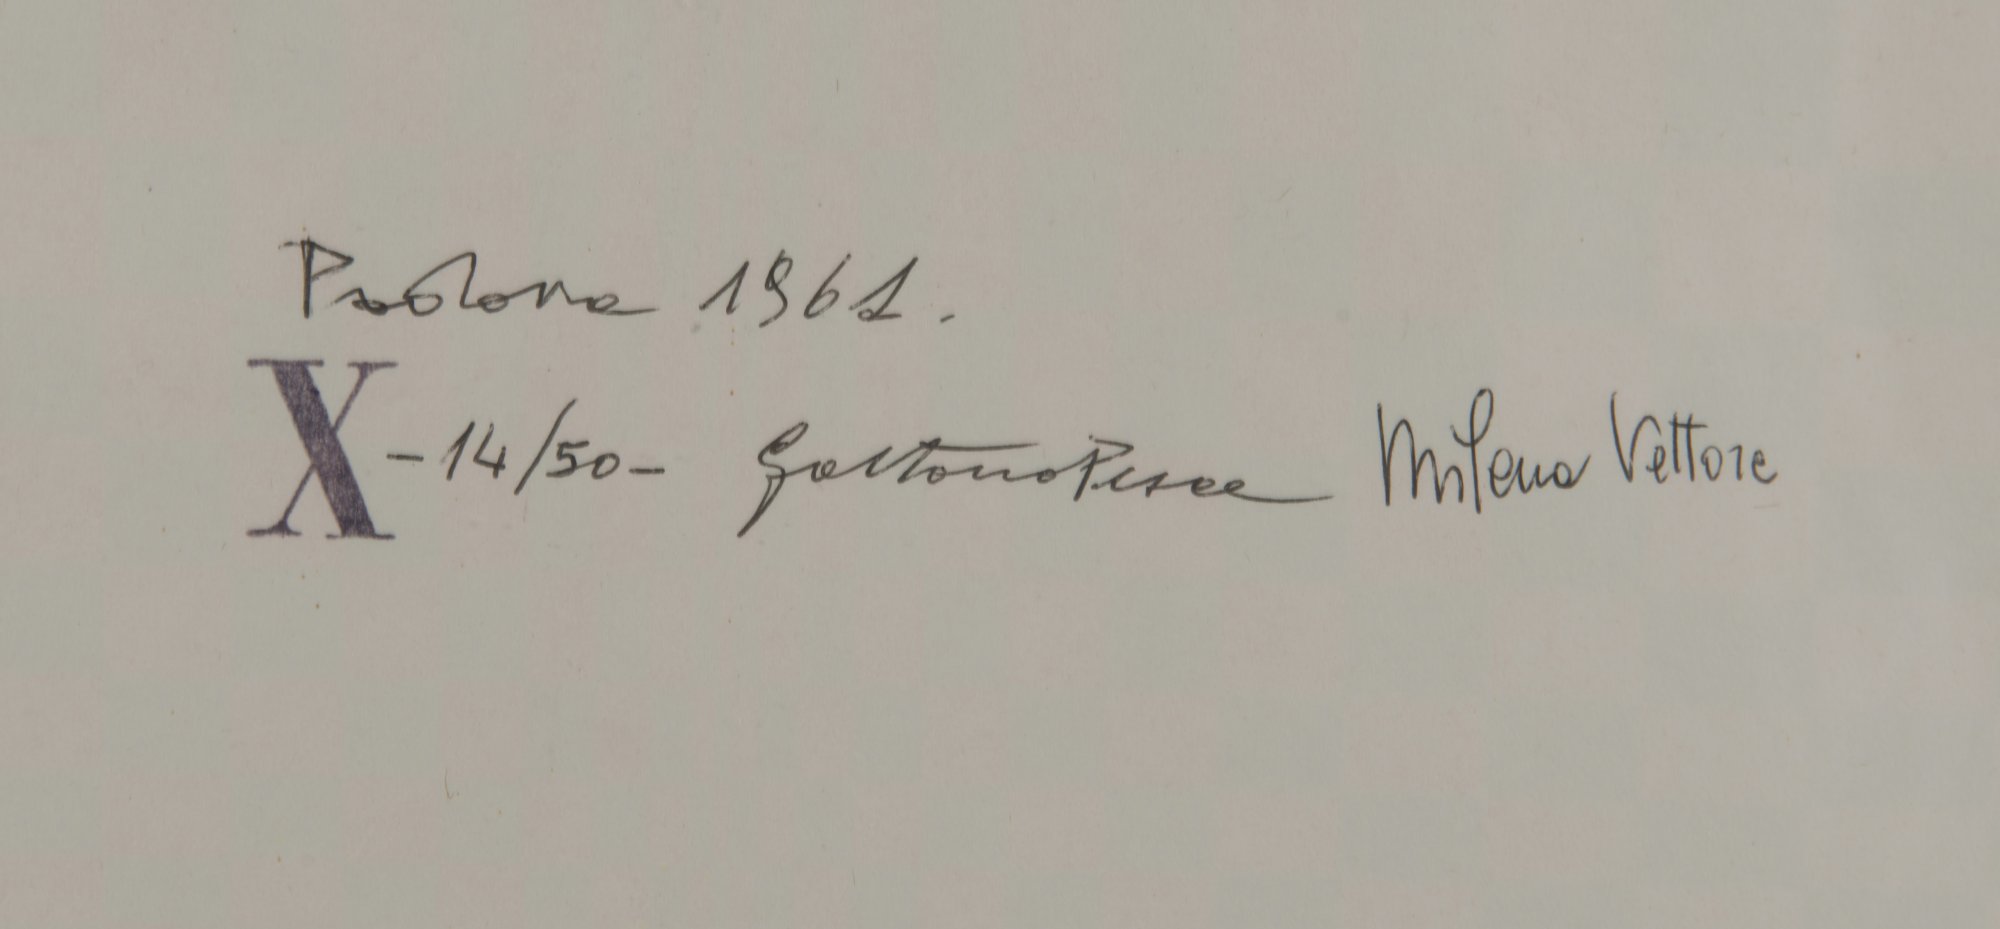 Padova 1961.
X -14/50- Gaetano Pesce Milena Vettore